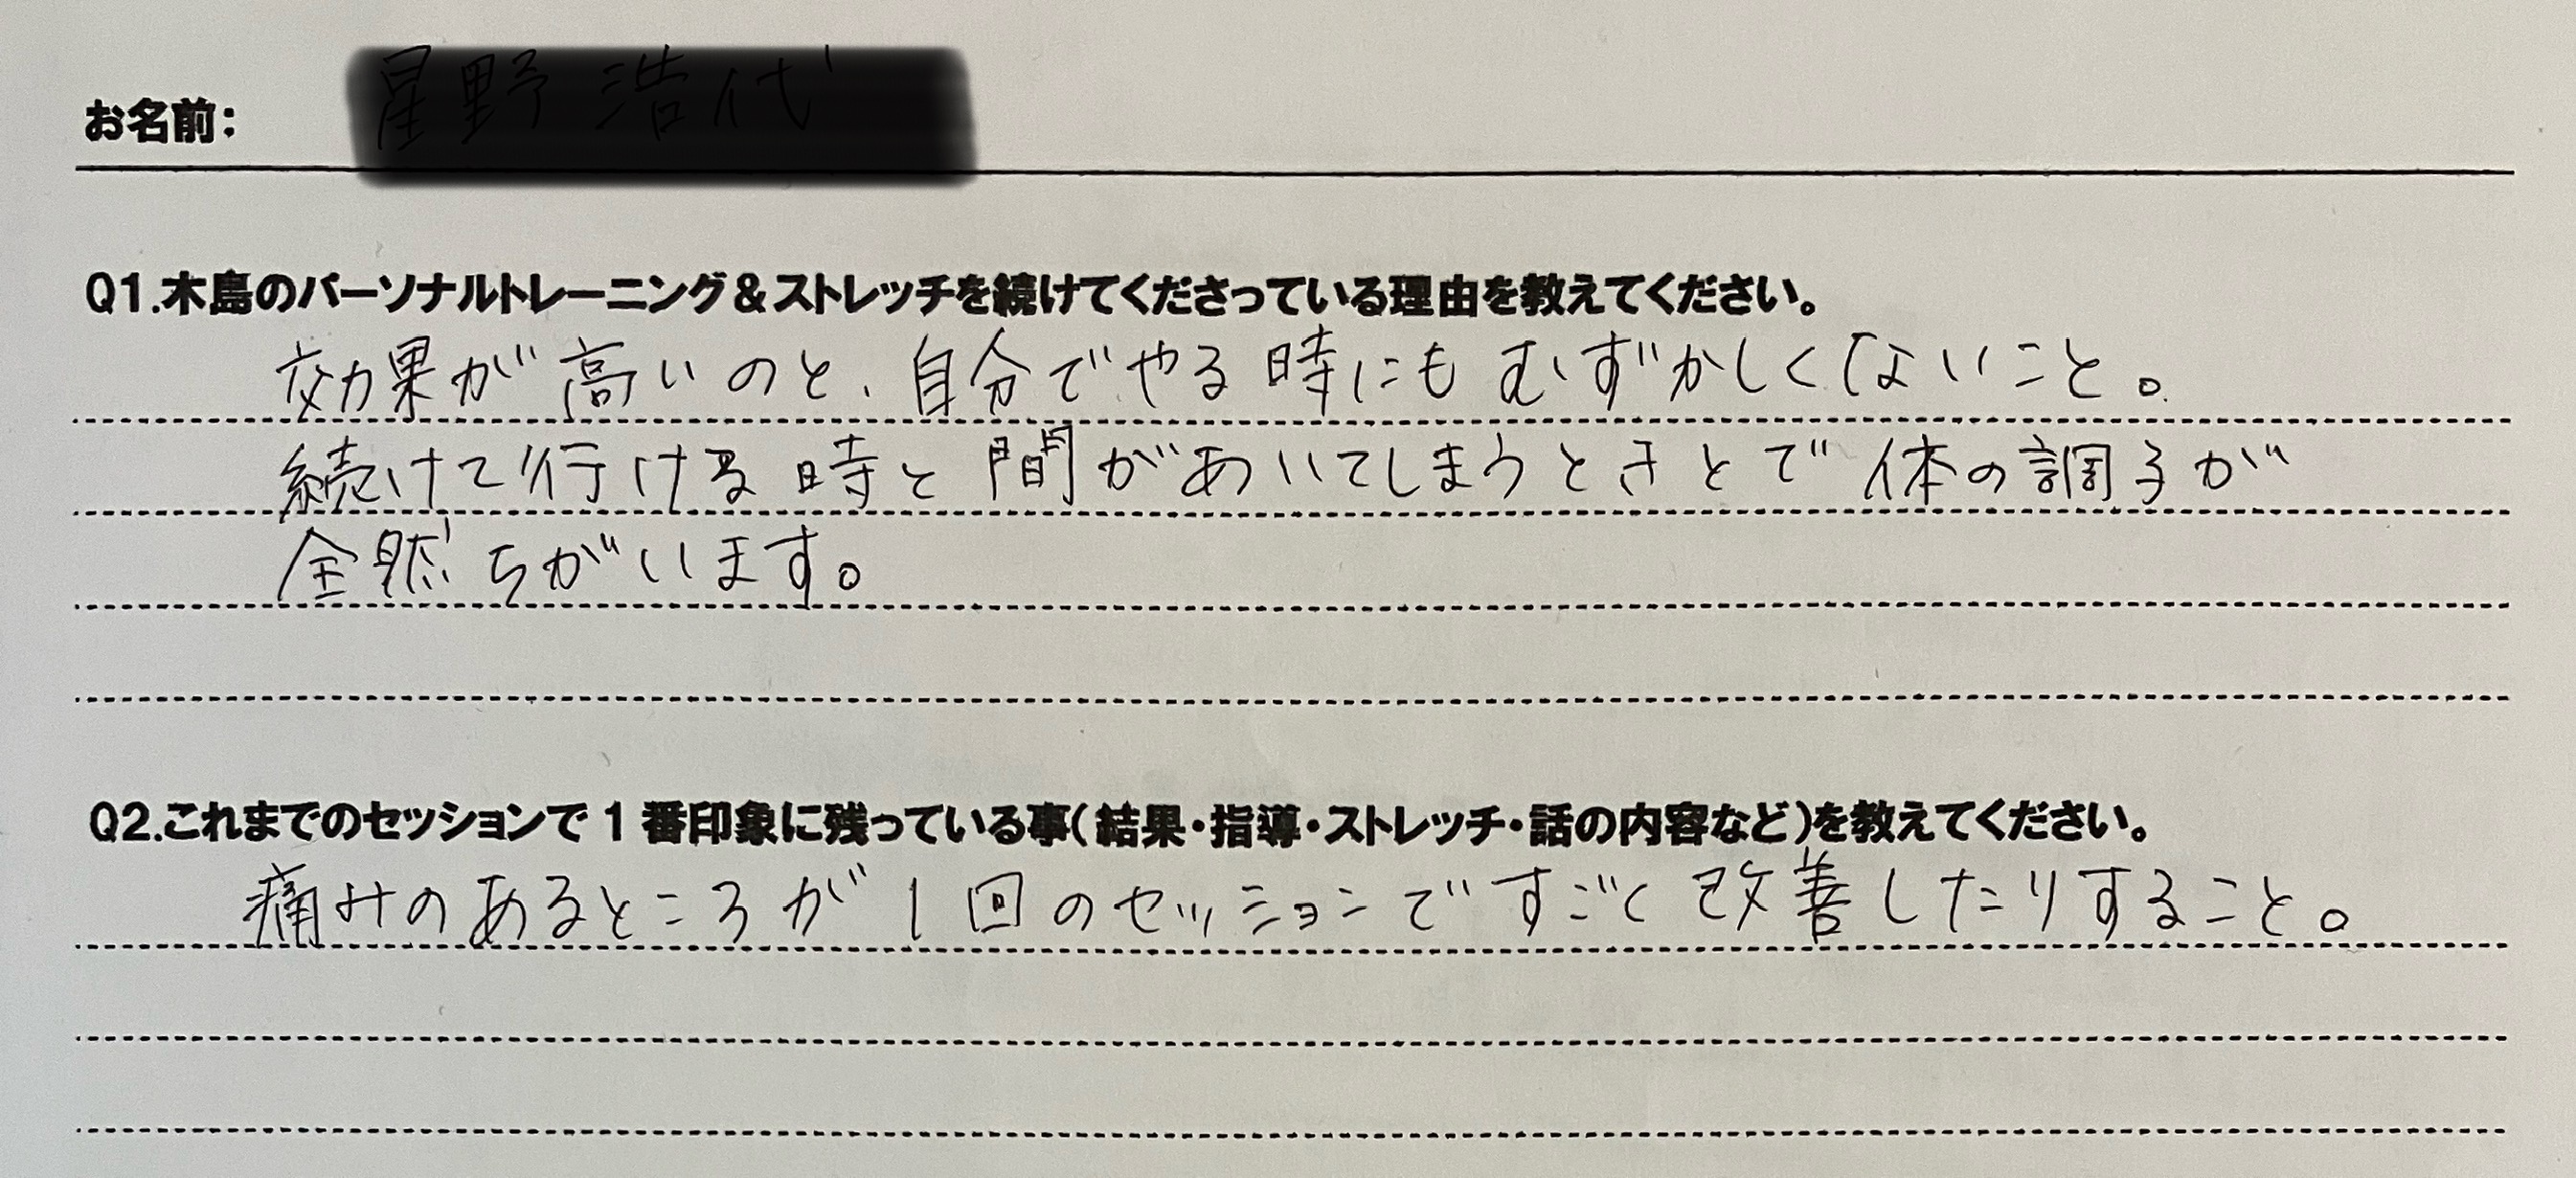 お名前：
Q1.木島のパーソナルトレーニング＆ストレッチを続けてくださっている理由を教えてください。
効果が高いのと、自分でやる時にもむずかしくないこと。
続けて行ける時と間があいてしまうときとで体の調子が
全然ちがいます。
Q2.これまでのセッションで1番印象に残っている事（結果・指導・ストレッチ・話の内容など）を教えてください。
痛みのあるところが1回のセッションですごく改善したりすること。